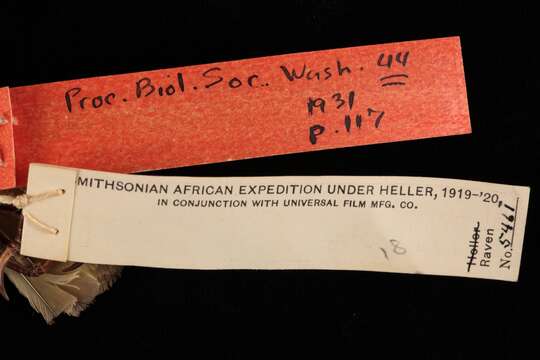 Proc. Biol. Soc. Wash. 44
1931
p. 117
MITHSONIAN AFRICAN EXPEDITION UNDER HELLER, 1919-'20,
IN CONJUNCTION WITH UNIVERSAL FILM MFG. CO.
18
Heller
Raven
No. 5461